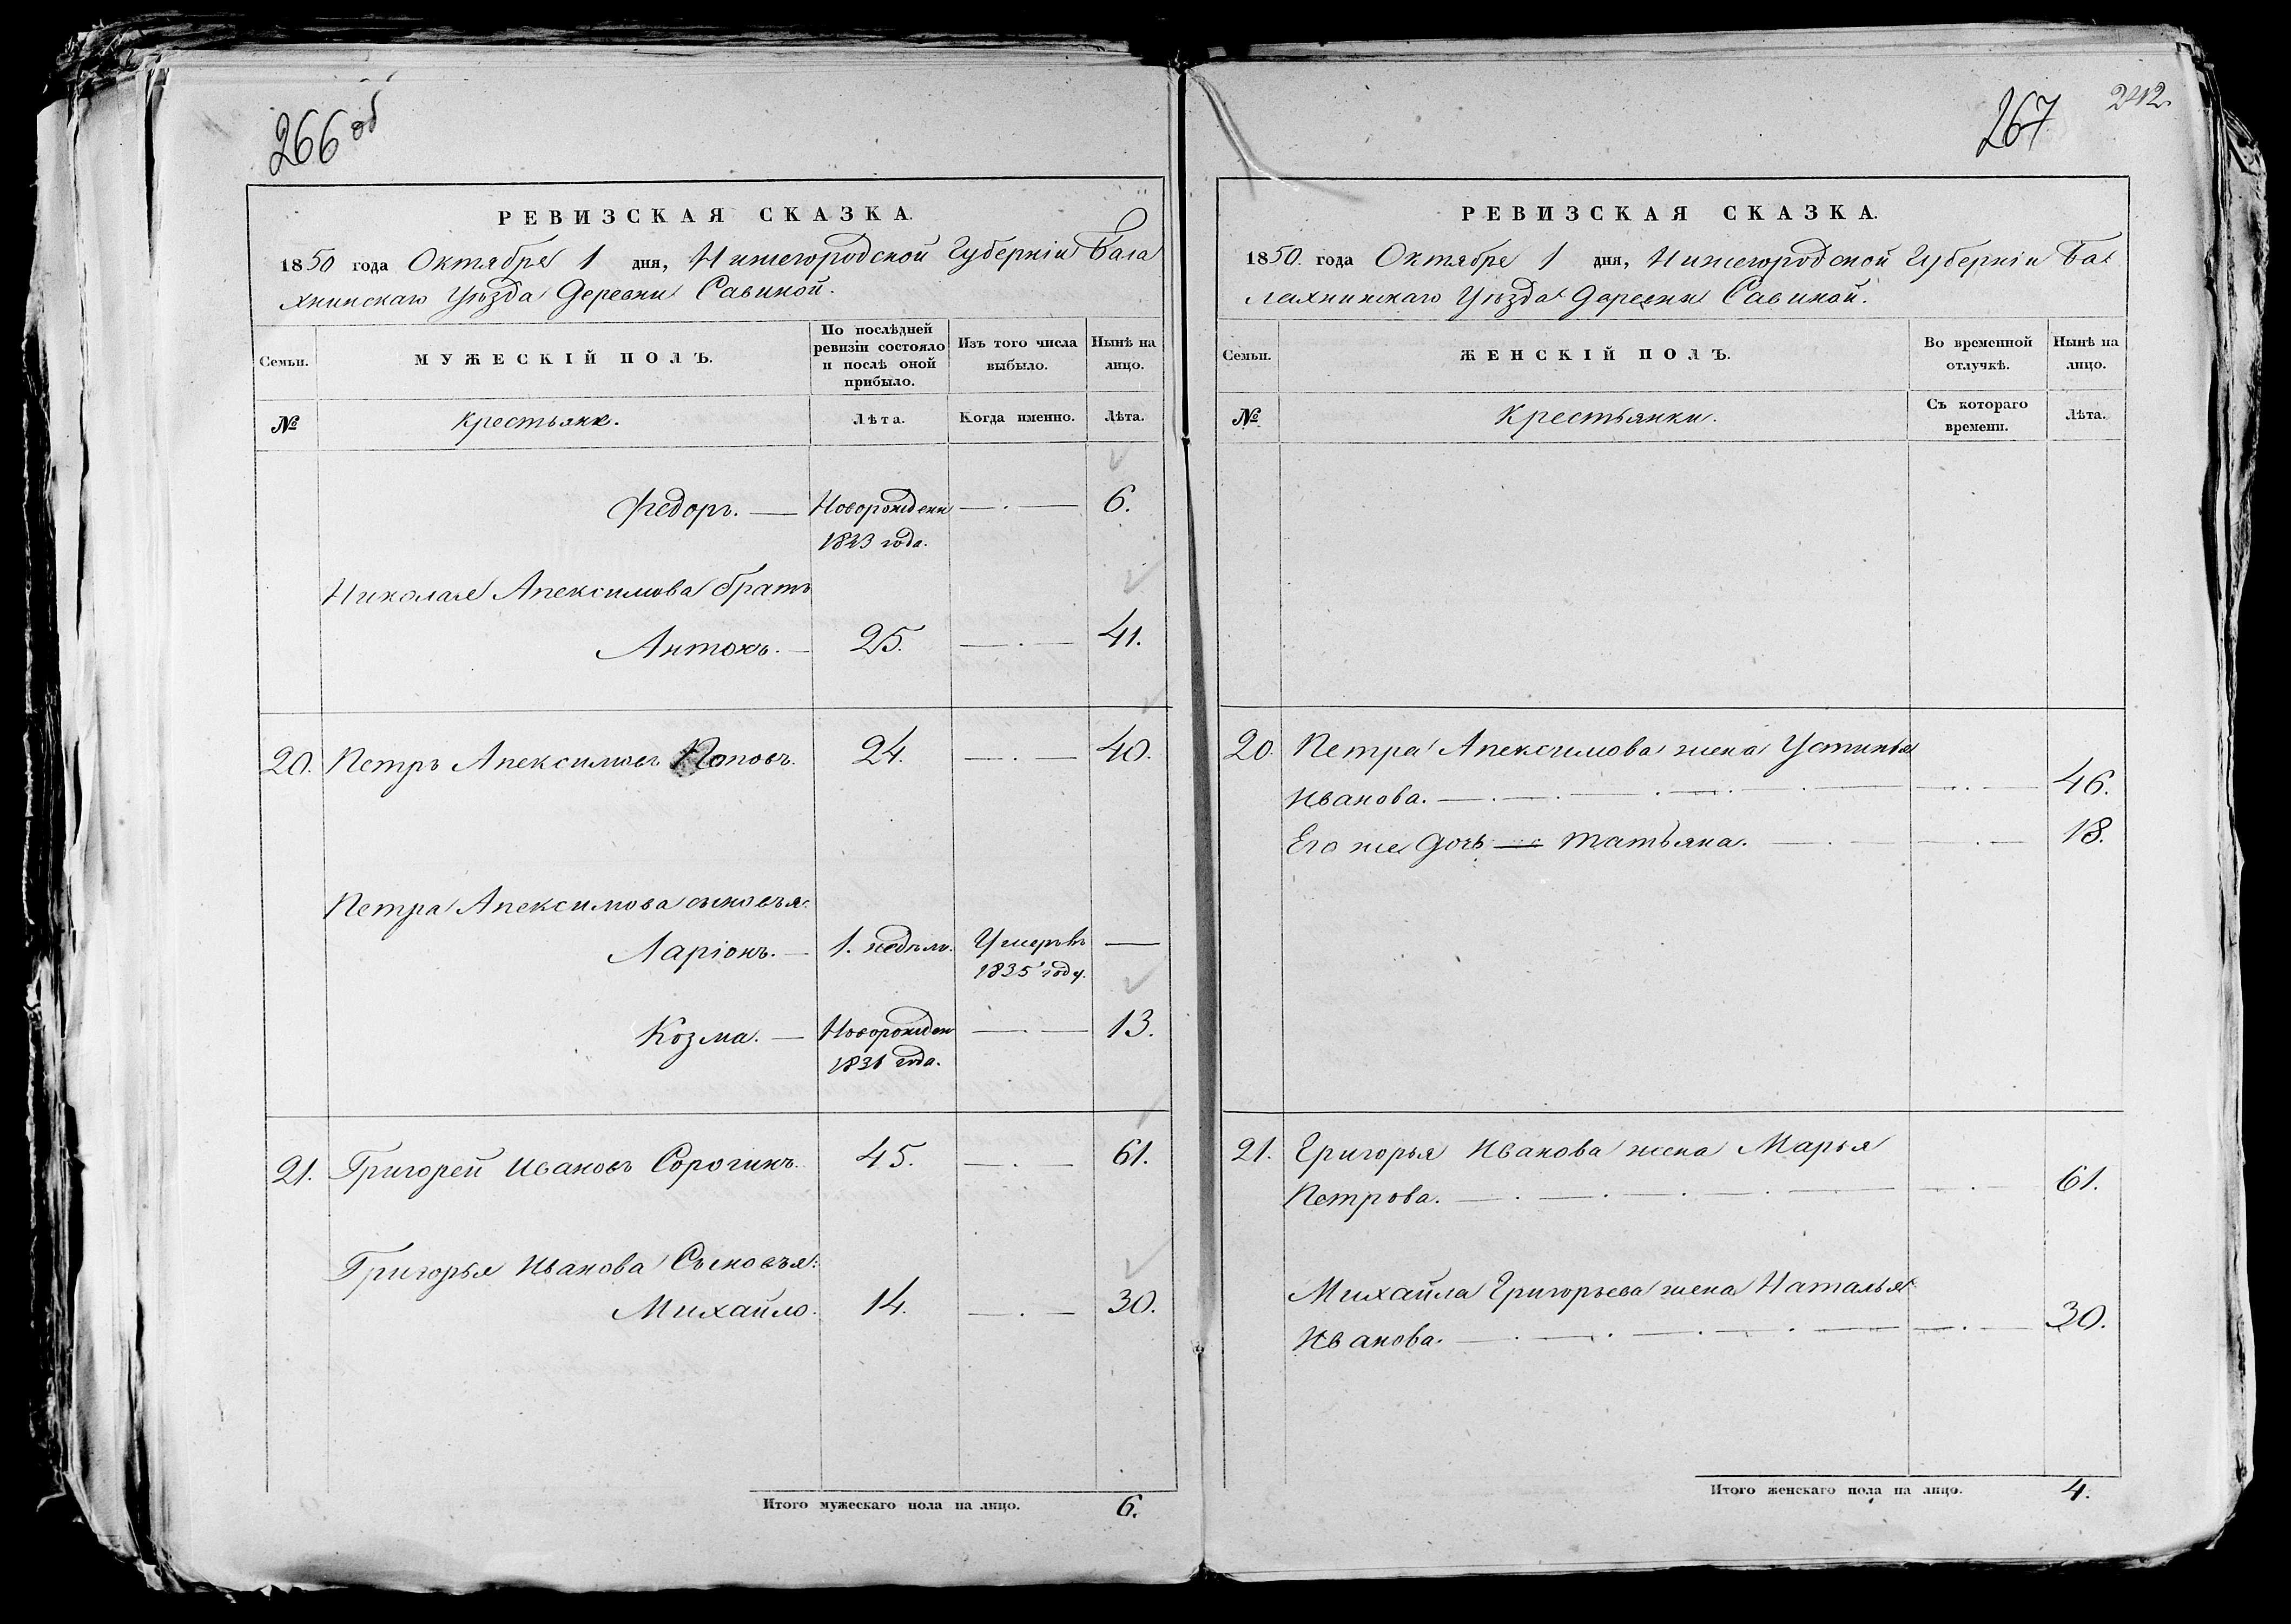 266 об
РЕВИЗСКАЯ СКАЗКА.
1850 года Октября 1 дня, Нижегородской Губерніи Бала
хнинскаго Уѣзда Деревни Савиной.
Семьи.
МУЖЕСКІЙ ПОЛЪ.
По послѣдней ревизіи состояло и послѣ оной прибыло.
Изъ того числа выбыло.
Нынѣ на лицо.
№
Крестьяне.
Лѣта.
Когда именно.
Лѣта.
Федоръ. — Новорожденн — . — 6.
1843 года.
Николая Алексимова братъ
Антонъ. — 25. — . — 41.
20. Петръ Алексимовъ Поповъ. 24. — . — 40.
Петра Алексимова сыновья:
Ларіонъ. — 1. недѣль. Умеръ въ —
1835 году.
Козма. — Новорожден — . — 13.
1831 года.
21. Григорей Ивановъ Сорогинъ. 45. — . — 61.
Григорья Иванова Сыновья:
Михайло. 14. — . — 30.
Итого мужескаго пола на лицо. 6.
267 242.
РЕВИЗСКАЯ СКАЗКА.
1850. года Октября 1 дня, Нижегородской Губерніи Ба
лахнинскаго Уѣзда Деревни Савиной.
Семьи.
ЖЕНСКІЙ ПОЛЪ.
Во временной отлучкѣ.
Нынѣ на лицо.
№
Крестьянки.
Съ котораго времени.
Лѣта.
20. Петра Алексимова жена Устинья
Иванова. — 46.
Его же дочь — Татьяна. — 18.
21. Григорья Иванова жена Марья
Петрова. — 61.
Михайла Григорьева жена Наталья
Иванова. — 30.
Итого женскаго пола на лицо. 4.